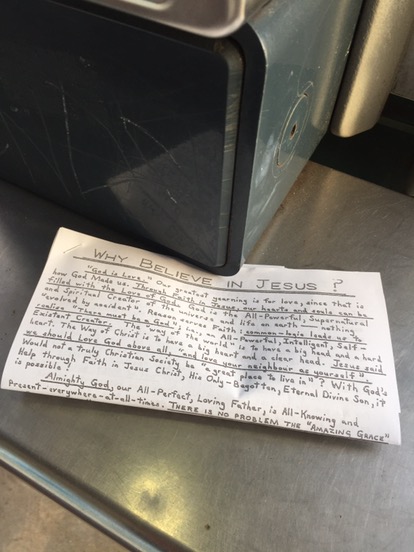 WHY BELIEVE IN JESUS ?
"God is Love" - Our greatest yearning is for love, since that is
how God Made us. Through Faith in Jesus, our hearts and souls can be
filled with the Love of God. God is the All-Powerful Supernatural
and Spiritual Creator of the universe and life on earth — nothing
"evolved by accident". Reason, Cause, Faith, common-logic leads us to
realize "there must be a God", i.e. an All-Powerful, Intelligent, Self-
Existent Creator. The "way of the world" is to have a big head and a hard
heart. The Way of Christ is to have a big heart and a clear head. Jesus said
we should Love God above all, "and your neighbour as yourself".
Would not a truly Christian Society be "a great place to live in"? With God's
Help through Faith in Jesus Christ, His Only-Begotten, Eternal Divine Son, it
is possible!
Almighty God, our All-Perfect, Loving Father, is All-Knowing and
Present-everywhere-at-all-times. THERE IS NO PROBLEM THE "AMAZING GRACE"